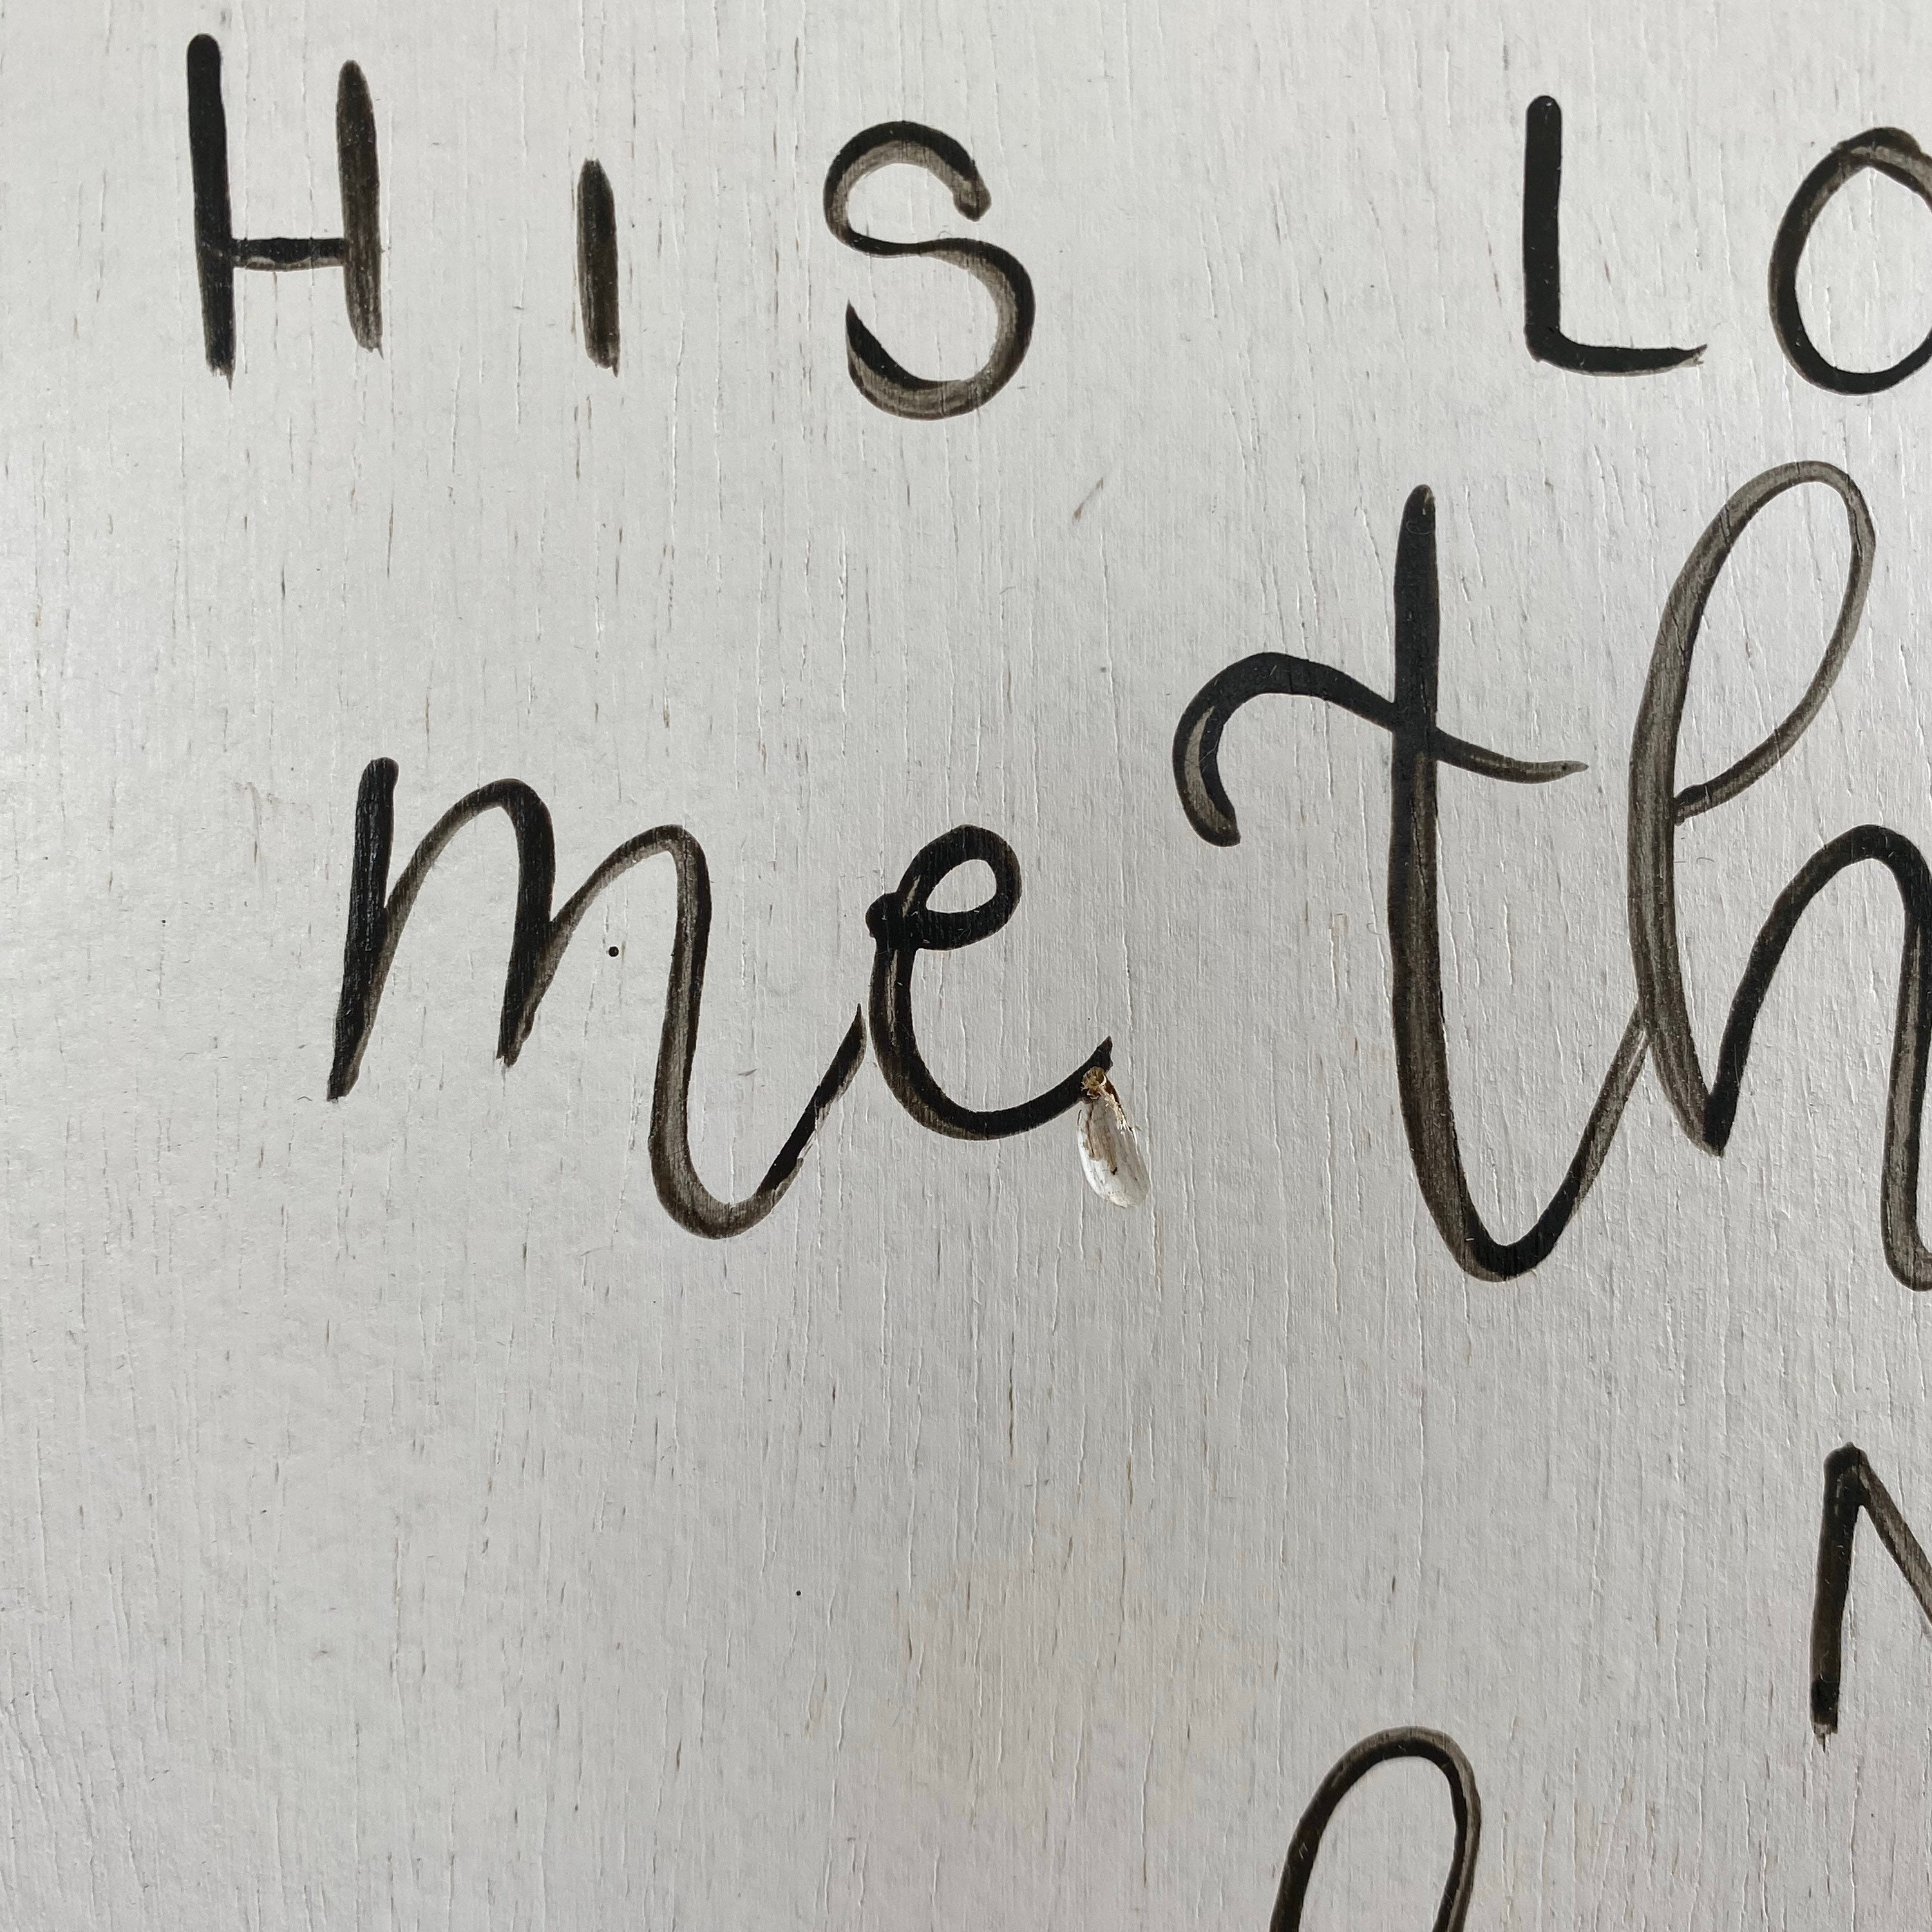 HIS LO
me th
N